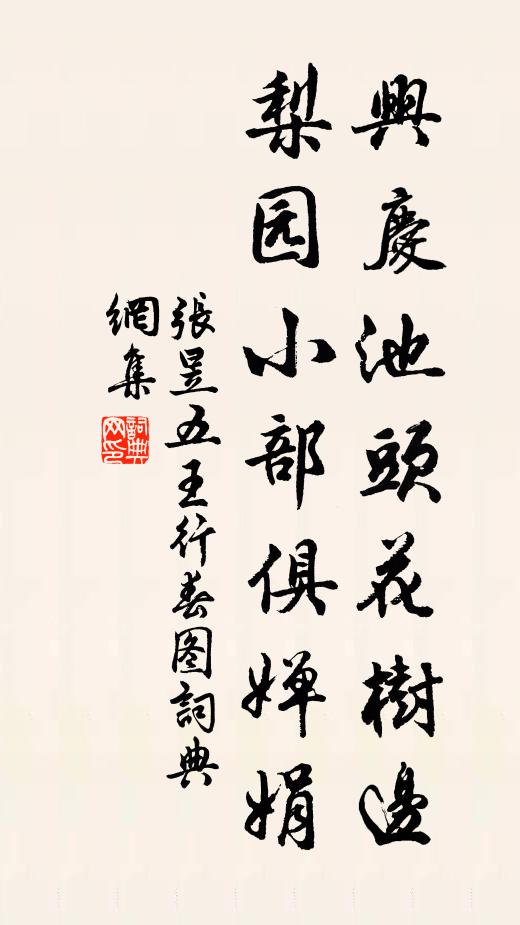 興慶池頭花樹邊
梨园小部俱婵娟
張昱五王行春图詞典
網集
詞典網印